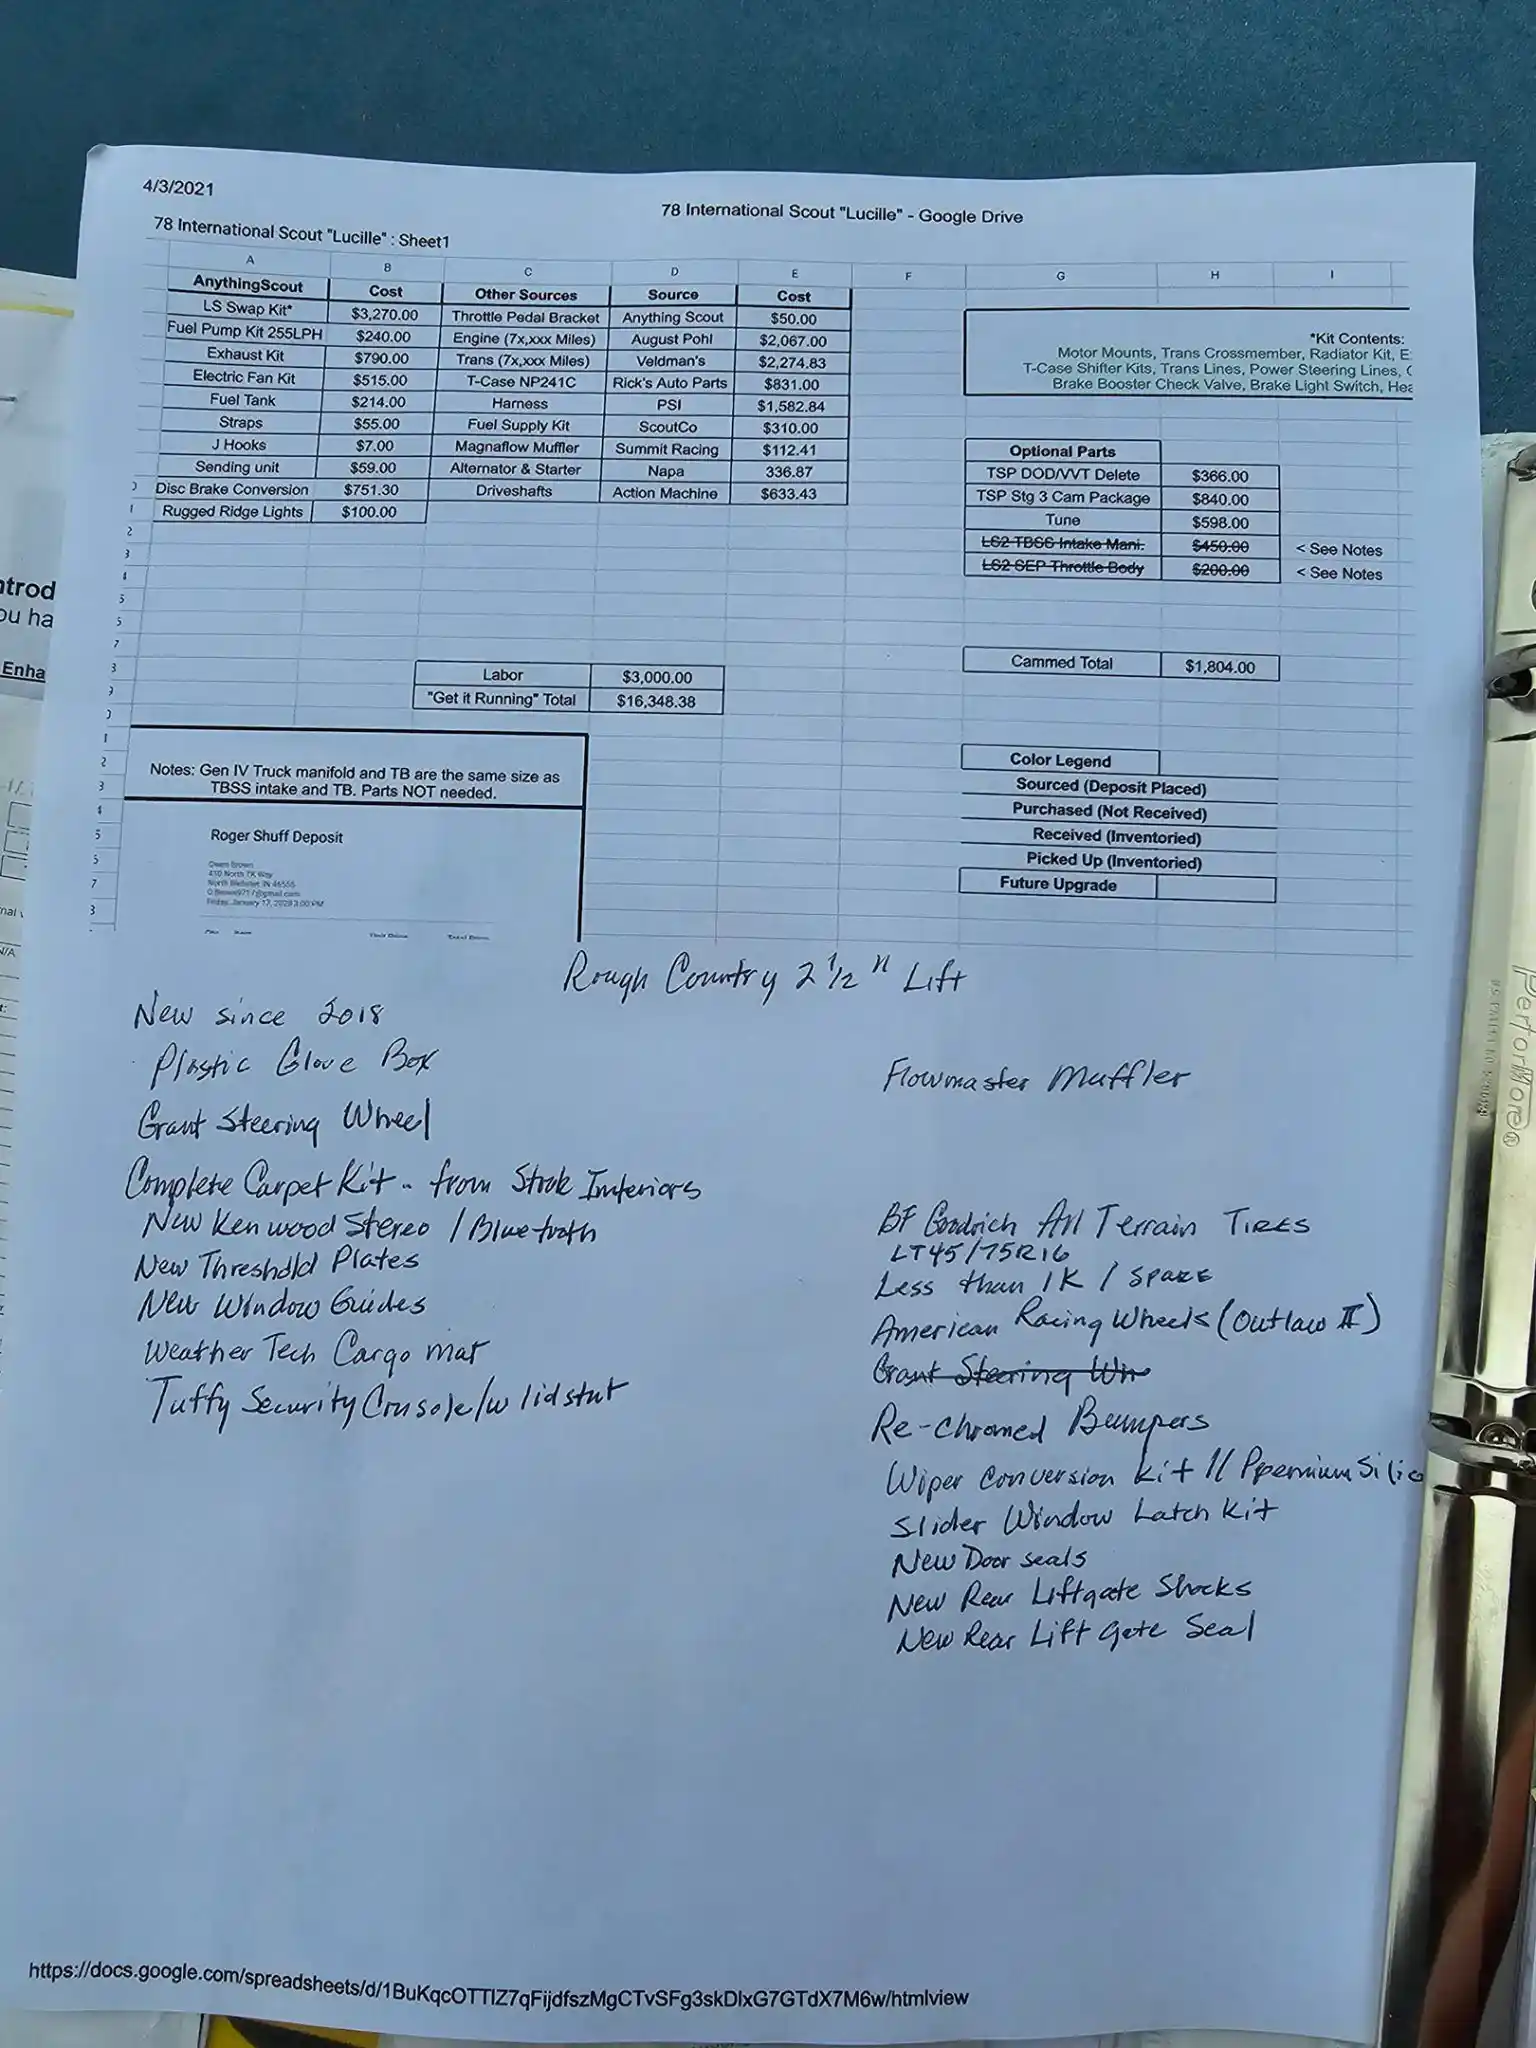 4/3/2021
78 International Scout "Lucille" - Google Drive
78 International Scout "Lucille" : Sheet1
A B C D E F G H I
AnythingScout Cost Other Sources Source Cost
LS Swap Kit* $3,270.00 Throttle Pedal Bracket Anything Scout $50.00
Fuel Pump Kit 255LPH $240.00 Engine (7x,xxx Miles) August Pohl $2,067.00
Exhaust Kit $790.00 Trans (7x,xxx Miles) Veldman's $2,274.83
Electric Fan Kit $515.00 T-Case NP241C Rick's Auto Parts $831.00
Fuel Tank $214.00 Harness PSI $1,582.84
Straps $55.00 Fuel Supply Kit ScoutCo $310.00
J Hooks $7.00 Magnaflow Muffler Summit Racing $112.41
Sending unit $59.00 Alternator & Starter Napa 336.87
Disc Brake Conversion $751.30 Driveshafts Action Machine $633.43
Rugged Ridge Lights $100.00
*Kit Contents:
Motor Mounts, Trans Crossmember, Radiator Kit, E
T-Case Shifter Kits, Trans Lines, Power Steering Lines,
Brake Booster Check Valve, Brake Light Switch, Hea
Optional Parts
TSP DOD/VVT Delete $366.00
TSP Stg 3 Cam Package $840.00
Tune $598.00
LS2 TBSS Intake Mani. $450.00 < See Notes
LS2 SEP Throttle Body $200.00 < See Notes
Cammed Total $1,804.00
Labor $3,000.00
"Get it Running" Total $16,348.38
Color Legend
Sourced (Deposit Placed)
Purchased (Not Received)
Received (Inventoried)
Picked Up (Inventoried)
Future Upgrade
Notes: Gen IV Truck manifold and TB are the same size as
TBSS intake and TB. Parts NOT needed.
Roger Shuff Deposit
Owen Brown
410 North TK Way
North Webster IN 46555
Rough Country 2 1/2" Lift
New since 2018
Plastic Glove Box
Grant Steering Wheel
Complete Carpet Kit - from Stock Interiors
New Kenwood Stereo / Bluetooth
New Threshold Plates
New Window Guides
Weather Tech Cargo mat
Tuffy Security Console/w lid strut
Flowmaster Muffler
BF Goodrich All Terrain TIRES
LT45/75R16
Less than 1K / SPARE
American Racing Wheels (Outlaw II)
Grant Steering Wh
Re-chromed Bumpers
Wiper conversion kit // Ppremium Silic
Slider Window Latch Kit
New Door seals
New Rear Liftgate Shocks
New Rear Lift Gate Seal
https://docs.google.com/spreadsheets/d/1BuKqcOTTlZ7qFijdfszMgCTvSFg3skDlxG7GTdX7M6w/htmlview
ntrod
ou ha
Enha
N/A
PerforMore®